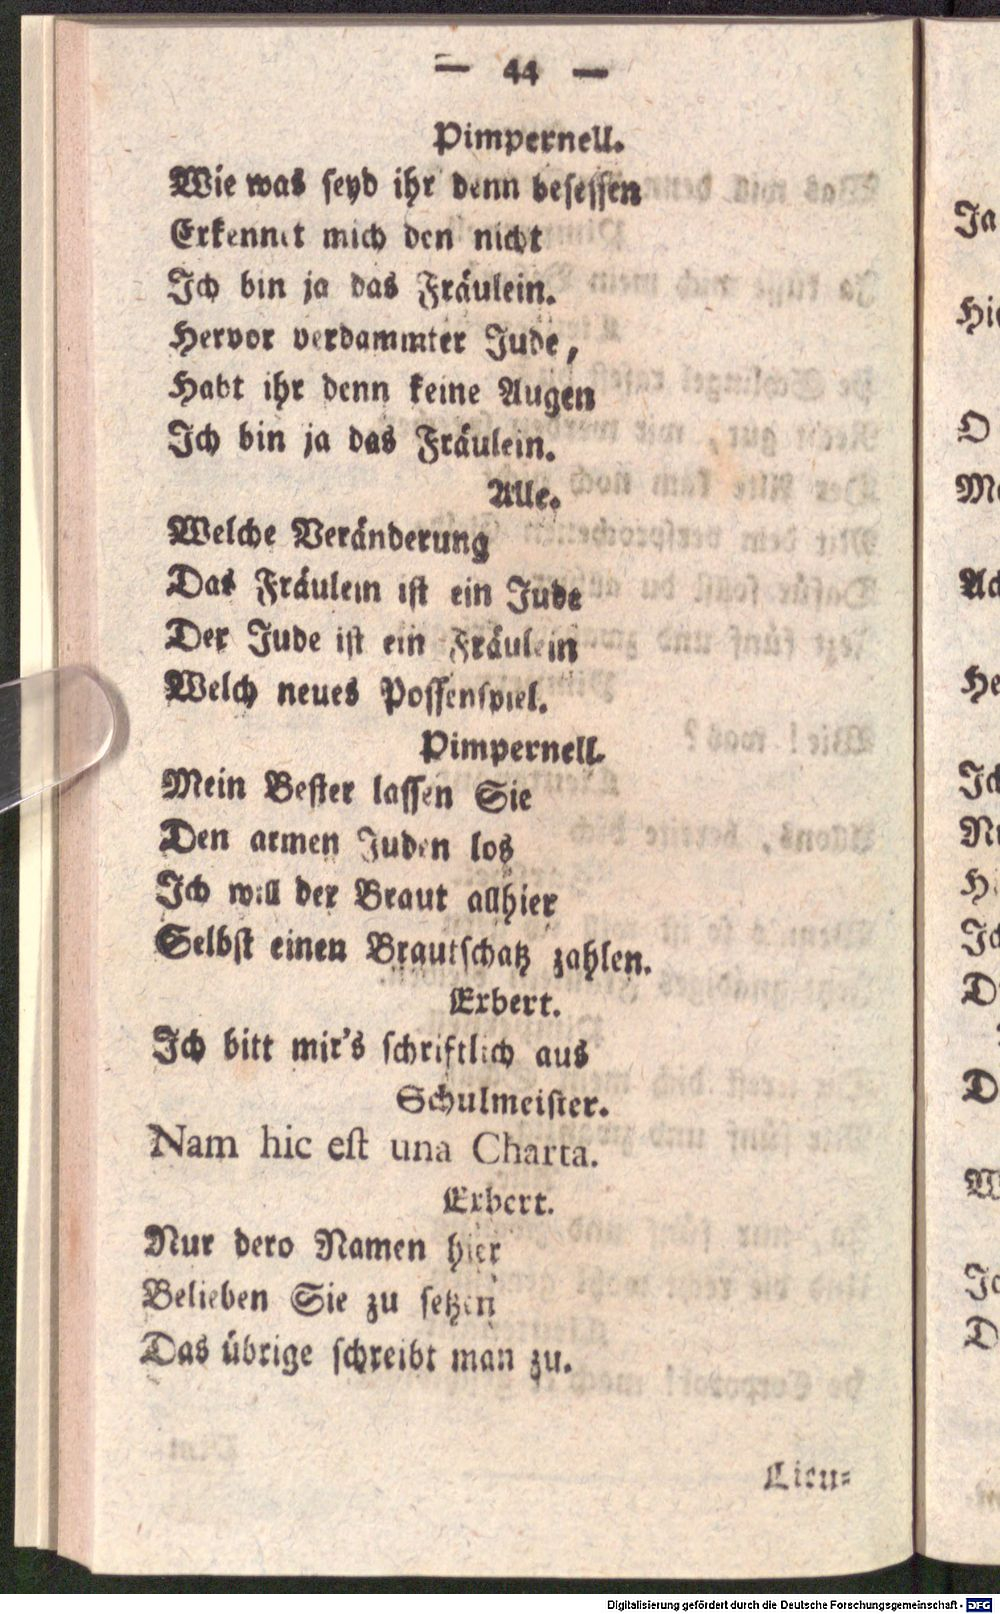 — 44 —
Pimpernell.
Wie was seyd ihr denn besessen
Erkennet mich den nicht
Ich bin ja das Fräulein.
Hervor verdammter Jude,
Habt ihr denn keine Augen
Ich bin ja das Fräulein.
Alle.
Welche Veränderung
Das Fräulein ist ein Jude
Der Jude ist ein Fräulein
Welch neues Possenspiel.
Pimpernell.
Mein Bester lassen Sie
Den armen Juden los
Ich will der Braut allhier
Selbst einen Brautschatz zahlen.
Erbert.
Ich bitt mir's schriftlich aus
Schulmeister.
Nam hic est una Charta.
Erbert.
Nur dero Namen hier
Belieben Sie zu setzen
Das übrige schreibt man zu.
Lieu=
Ja
O
Digitalisierung gefördert durch die Deutsche Forschungsgemeinschaft - DFG